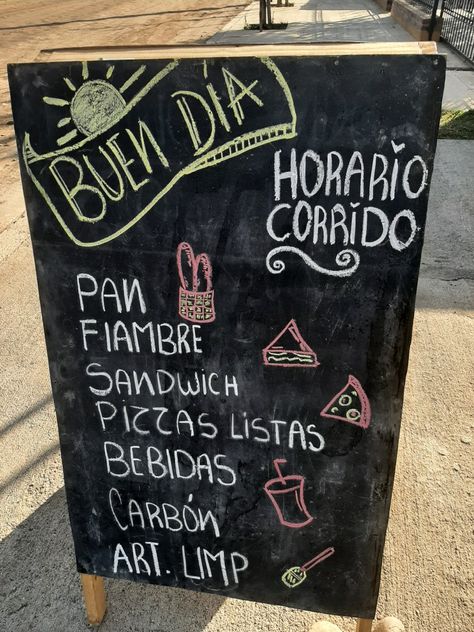 BUEN DÍA
HORARIO
CORRIDO
PAN
FIAMBRE
SANDWICH
PIZZAS LISTAS
BEBIDAS
CARBÓN
ART. LIMP